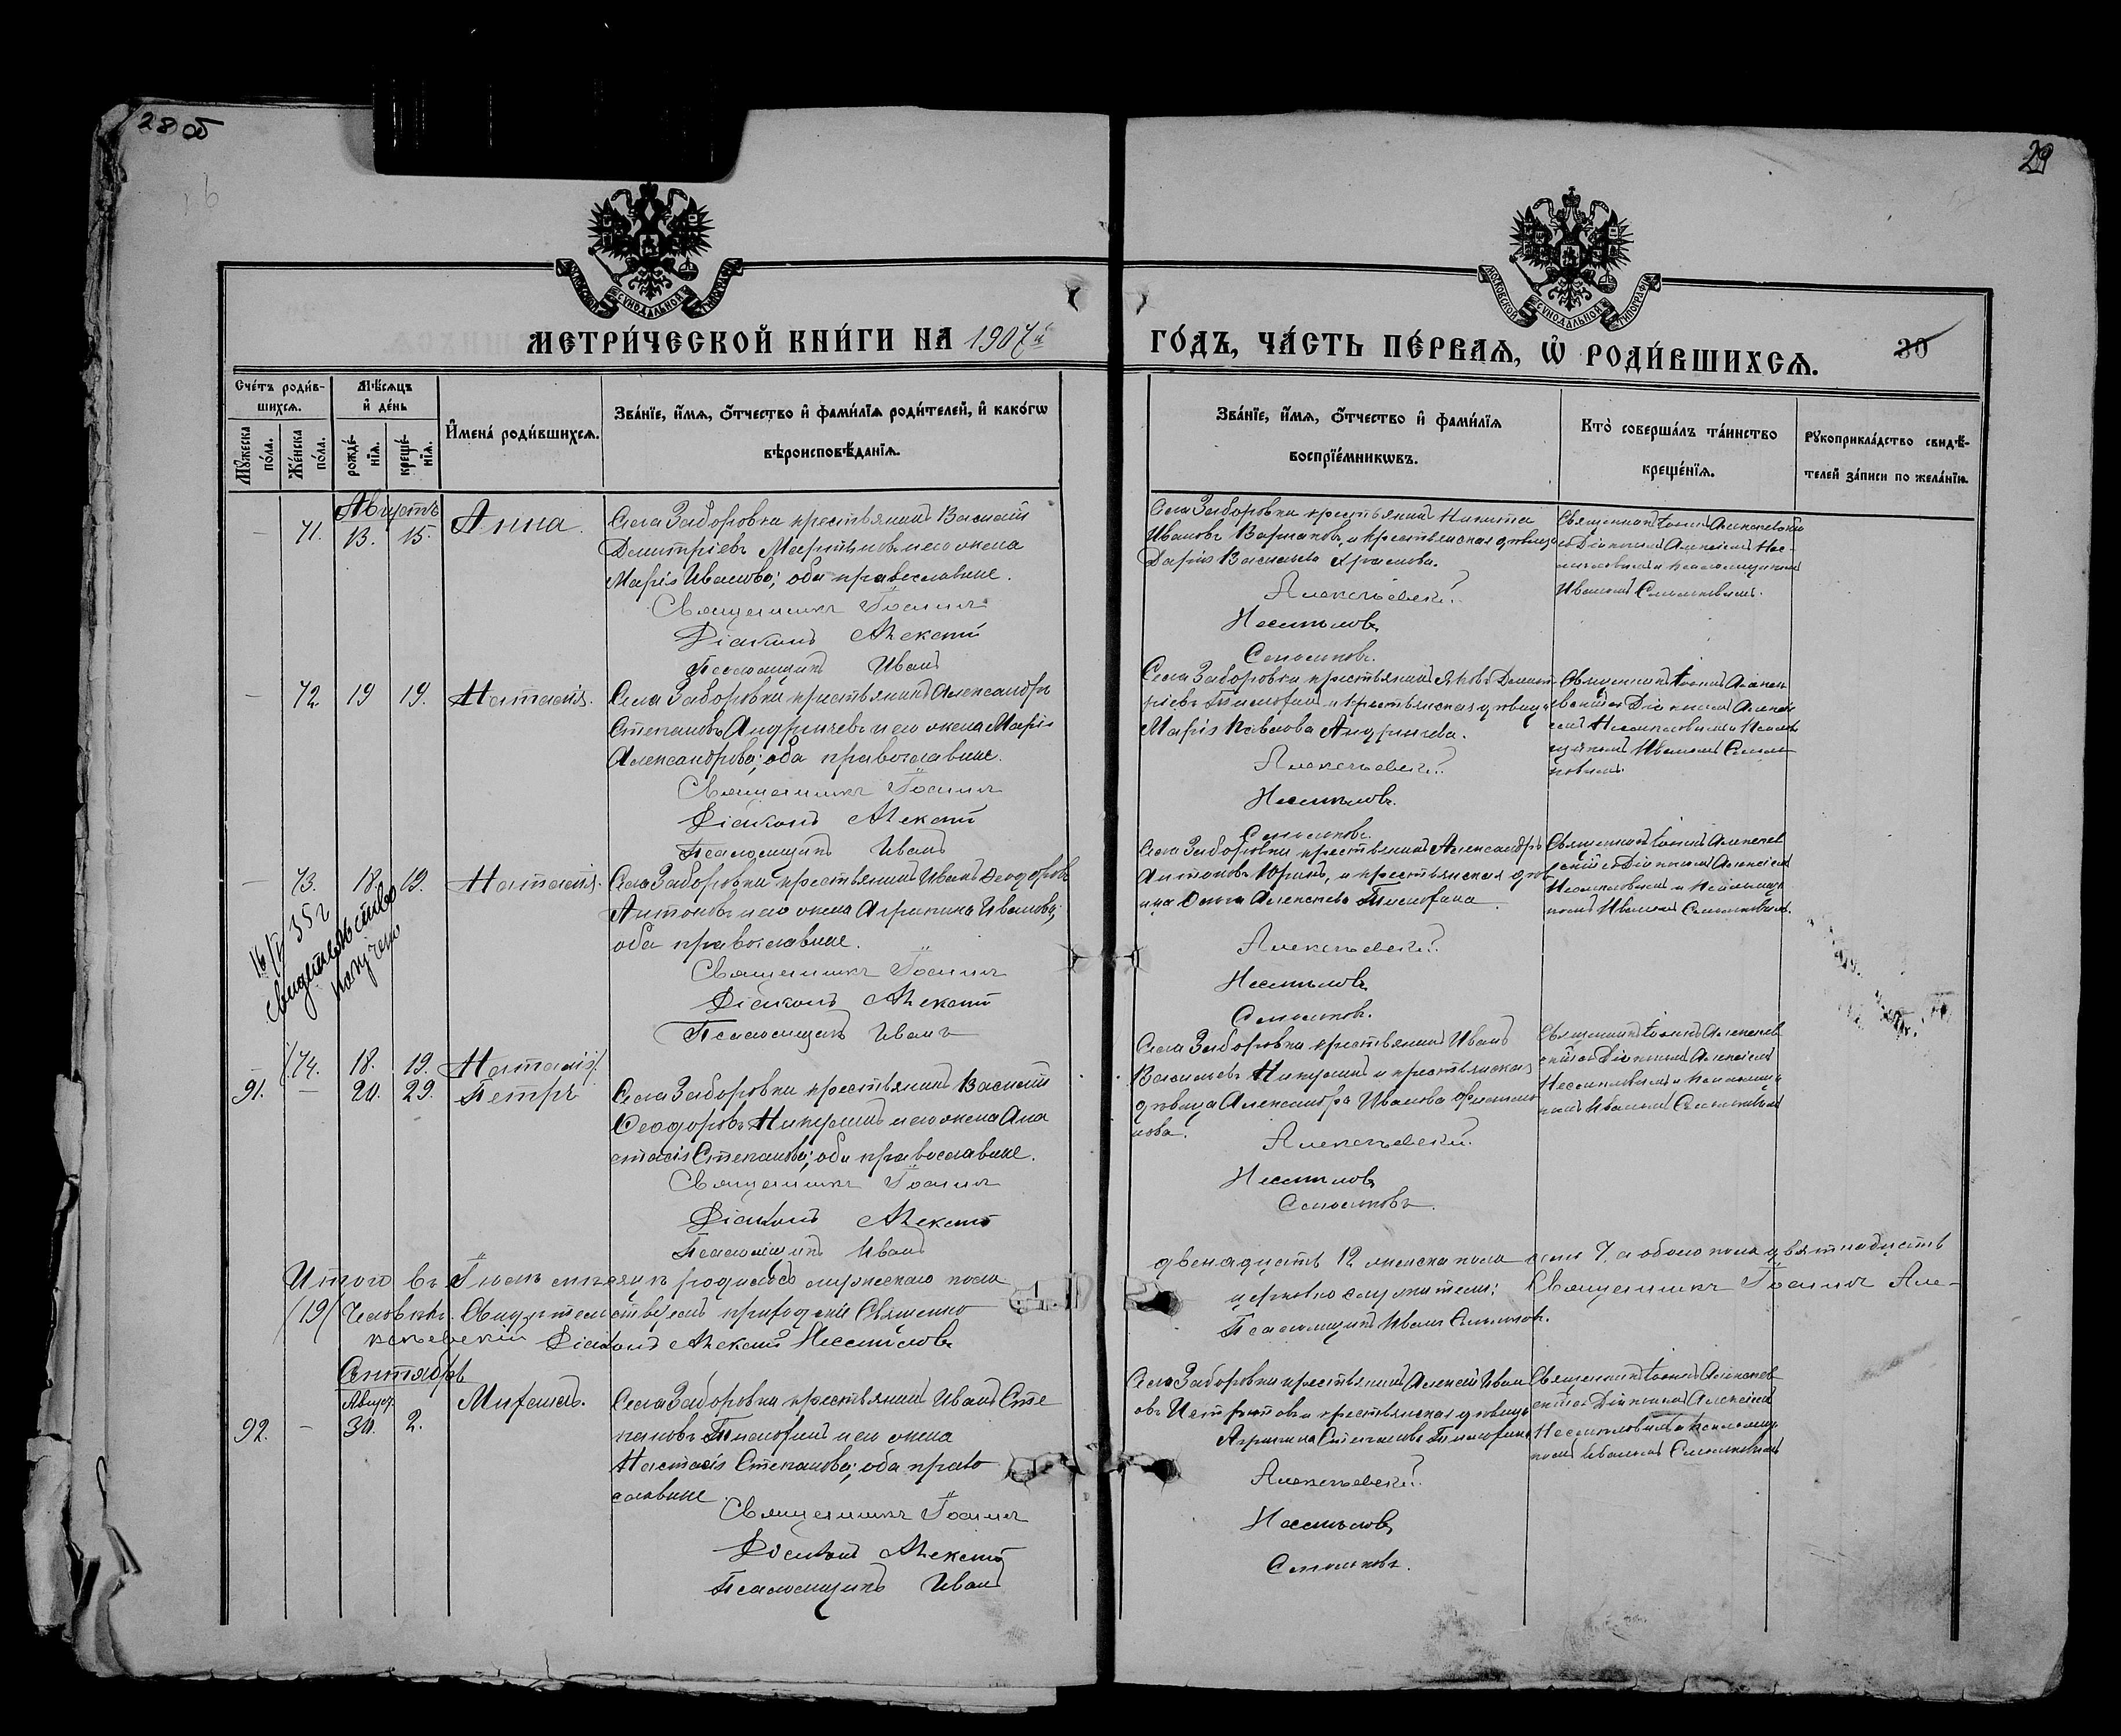 28 об
29
МОСКОВСКОЙ СУНОДАЛЬНОЙ ТИПОГРАФІИ
МОСКОВСКОЙ СУНОДАЛЬНОЙ ТИПОГРАФІИ
МЕТРИ́ЧЕСКОЙ КНИ́ГИ НА 1907й
ГО́ДЪ, ЧА́СТЬ ПЕ́РВАѦ, Ѡ҆ РОДИ́ВШИХСѦ.
30
Сче́тъ роди́в-
шихсѧ.
Мꙋ́жеска по́ла.
Же́нска по́ла.
Мѣ́сѧцъ
и҆ де́нь
рожде́-
нїѧ.
креще́-
нїѧ.
И҆мена́ роди́вшихсѧ.
Зва́нїе, и҆́мѧ, о҆́тчество и҆ фами́лїѧ роди́телей, и҆ како́гѡ
вѣроисповѣ́данїѧ.
Зва́нїе, и҆́мѧ, о҆́тчество и҆ фами́лїѧ
воспрїе́мникѡвъ.
Кто̀ соверша́лъ та́инство
креще́нїѧ.
Рꙋкоприкла́дство свидѣ́-
телей за́писи по жела́нїю.
Августъ
— 71. 13. 15. Анна.
Села Заборовки крестьянинъ Василій
Димитріевъ Мартыновъ и его жена
Марія Иванова; оба православные.
Священникъ Іоаннъ
Діаконъ Алексій
Псаломщикъ Иванъ
Села Заборовки крестьянинъ Никита
Ивановъ и крестьянская дѣвица
Дарія Васильева
Алексѣевскій
Несмѣловъ
Смольковъ.
Священникъ Іоаннъ Алексѣевскій
съ Діакономъ Алексіемъ Нес-
мѣловымъ и псаломщикомъ
Иваномъ Смольковымъ.
— 72. 19 19. Наталія.
Села Заборовки крестьянинъ Александръ
Степановъ Андріячевъ и его жена Марія
Александрова; оба православные.
Священникъ Іоаннъ
Діаконъ Алексій
Псаломщикъ Иванъ
Села Заборовки крестьянинъ Яковъ Димит-
ріевъ и крестьянская дѣвица
Марія Павлова
Алексѣевскій
Несмѣловъ.
Смольковъ.
Священникъ Іоаннъ Алексѣ-
евскій съ Діакономъ Алексі-
емъ Несмѣловымъ и псалом-
щикомъ Иваномъ Смоль-
ковымъ.
— 73. 18. 19. Наталія.
Села Заборовки крестьянинъ Иванъ Ѳеодоровъ
Антоновъ и его жена Агрипина Иванова;
оба православные.
Священникъ Іоаннъ
Діаконъ Алексій
Псаломщикъ Иванъ
35 г
свидѣтельство
получено
Села Заборовки крестьянинъ Александръ
Антоновъ Юринъ, и крестьянская дѣв-
ица Ольга Алексѣева
Алексѣевскій
Несмѣловъ
Смольковъ.
Священникъ Іоаннъ Алексѣев-
скій съ Діакономъ Алексіемъ
Несмѣловымъ и псаломщи-
комъ Иваномъ Смольковымъ.
— /74. 18. 19. Наталія/
91. — 20. 29. Петръ
Села Заборовки крестьянинъ Василій
Ѳеодоровъ Никулинъ и его жена Ана
стасія Степанова; оба православные.
Священникъ Іоаннъ
Діаконъ Алексій
Псаломщикъ Иванъ
Села Заборовки крестьянинъ Иванъ
Васильевъ Никулинъ и крестьянская
дѣвица Александра Иванова
нова.
Алексѣевскій.
Несмѣловъ
Смольковъ.
Священникъ Іоаннъ Алексѣев-
скій съ Діакономъ Алексіемъ
Несмѣловымъ и псаломщи-
комъ Иваномъ Смольковымъ
Итого въ мѣсяцѣ родилось мужескаго пола
двенадцать 12 женска пола семь 7, а обоего пола девятнадцать
/19/ человѣкъ. Свидѣтельствуемъ приходскіе Священно
церковнослужители: Священникъ Іоаннъ Але-
ксѣевскій Діаконъ Алексій Несмѣловъ
Псаломщикъ Иванъ Смольковъ.
Сентябрь
Август.
92. — 30. 2. Михаилъ.
Села Заборовки крестьянинъ Иванъ Сте
пановъ и его жена
Настасія Степанова; оба право
славные.
Священникъ Іоаннъ
Діаконъ Алексій
Псаломщикъ Иванъ
Села Заборовки крестьянинъ Алексій Иван
овъ и крестьянская дѣвица
Агрипина Степанова
Алексѣевскій
Несмѣловъ
Смольковъ.
Священникъ Іоаннъ Алексѣев-
скій съ Діакономъ Алексіемъ
Несмѣловымъ и псаломщи-
комъ Иваномъ Смольковымъ